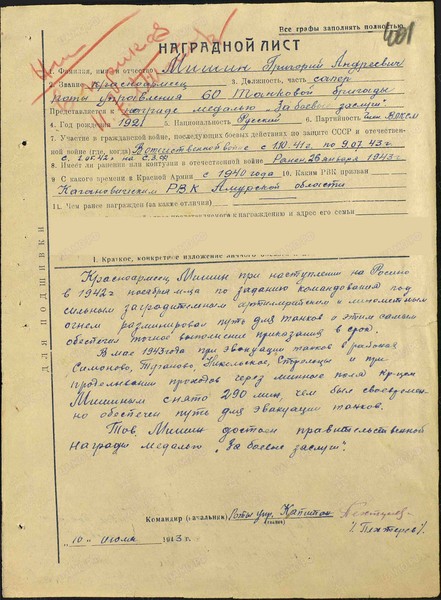 Все графы заполнять полностью.
401
НАГРАДНОЙ ЛИСТ
1. Фамилия, имя и отчество Мишин Григорий Андреевич
2. Звание красноармеец 3. Должность, часть сапер
роты управления 60 танковой бригады
Представляется к награде медалью „За боевые заслуги"
4. Год рождения 1921 5. Национальность Русский 6. Партийность член ВЛКСМ
7. Участие в гражданской войне, последующих боевых действиях по защите СССР и отечествен-
ной войне (где, когда) В отечественной войне с 1.10.41г. по 9.07.43г.
8. Имеет ли ранения или контузии в отечественной войне Ранен 26 января 1943г
9. С какого времени в Красной Армии с 1940 года 10. Каким РВК призван
Кагановическим РВК Амурской области
11. Чем ранее награжден (за какие отличия)
к награждению и адрес его семьи
I. Краткое, конкретное изложение
ДЛЯ ПОДШИВКИ
Красноармеец Мишин при наступлении на
в 1942г ноября м-ца по заданию командования под
сильным заградительным артиллерийским и минометным
огнем разминировал путь для танков и этим самым
обеспечил точное выполнение приказания в срок.
В мае 1943 года при эвакуации танков в районах
Симоново, Никольское, Стрельцы и при
проделывании проходов через минные поля Кр-цем
Мишиным снято 290 мин, чем был своевремен-
но обеспечен путь для эвакуации танков.
Тов. Мишин достоин правительственной
награды медалью „За боевые заслуги".
Командир (начальник) Роты упр. Капитан
(звание)
/Пехтерев/
"10" июля 1943 г.